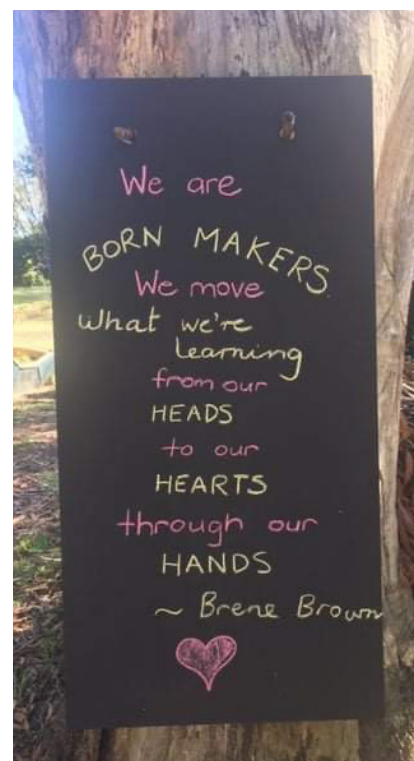 We are
BORN MAKERS
We move
What we're
learning
from our
HEADS
to our
HEARTS
through our
HANDS
~ Brene Brown